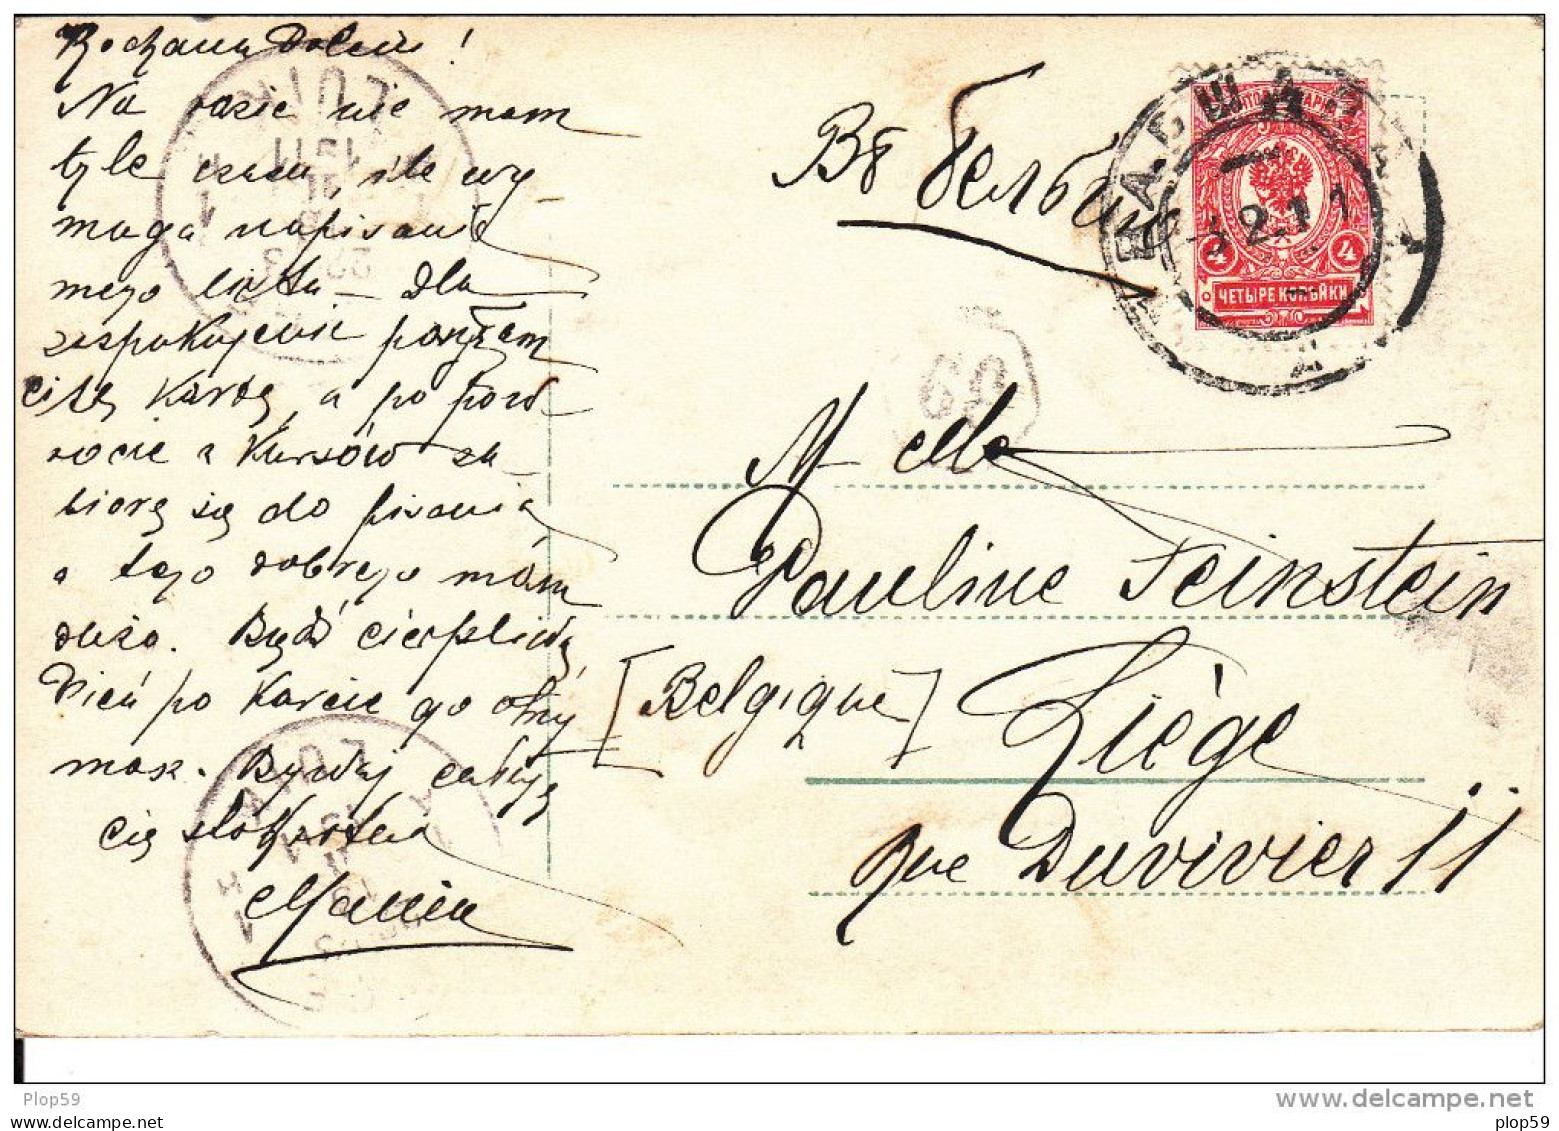 Kochana Polciu!
Na razie nie mam
tyle czasu, ile wy-
maga napisanie
mego listu — Dla
zaspokojenia posyłam
ci tę kartę, a po pow-
rocie z kursów za-
biorę się do pisania
a tego dobrego mam
dużo. Bądź cierpliwą
Dzień po karcie go otrzy-
masz. Bywaj całuję
cię stokrotnie
Mania
Въ Бельгію
ВАРШАВА
2.11
ЧЕТЫРЕ КОПѢЙКИ
4 4
60
Melle
Pauline Feinstein
[Belgique] Liège
Rue Duvivier 11
Plop59
© www.delcampe.net
plop59